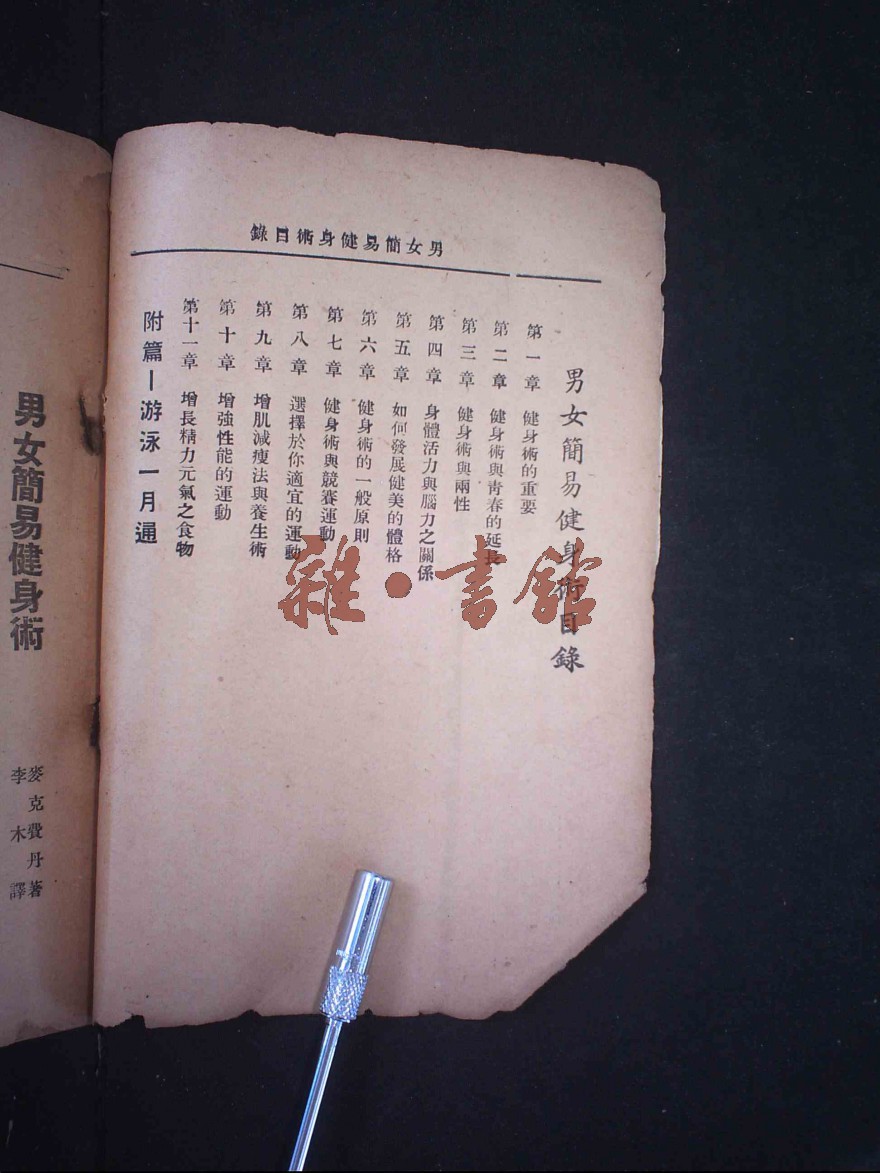 男女簡易健身術目錄
男女簡易健身術目錄
第一章 健身術的重要
第二章 健身術與青春的延長
第三章 健身術與兩性
第四章 身體活力與腦力之關係
第五章 如何發展健美的體格
第六章 健身術的一般原則
第七章 健身術與競賽運動
第八章 選擇於你適宜的運動
第九章 增肌減瘦法與養生術
第十章 增強性能的運動
第十一章 增長精力元氣之食物
附篇—游泳一月通
男女簡易健身術
麥克費丹著
李木譯
雜·書館